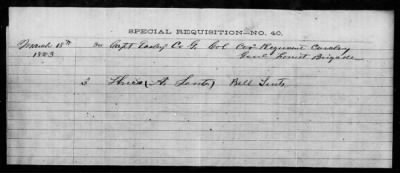 SPECIAL REQUISITION—NO. 40.
March 15th on Capt Easley Co F. Col Regiment Cavalry
1863 Brigade
3 Three (A. Tents) Bell Tents